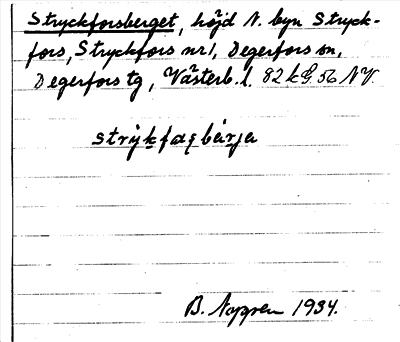 Stryckforsberget, höjd N. byn Stryck-
fors, Stryckfors nr 1, Degerfors sn,
Degerfors tg, Västerb. l. 82 k G. 56 NV.
B. Noggren 1934.